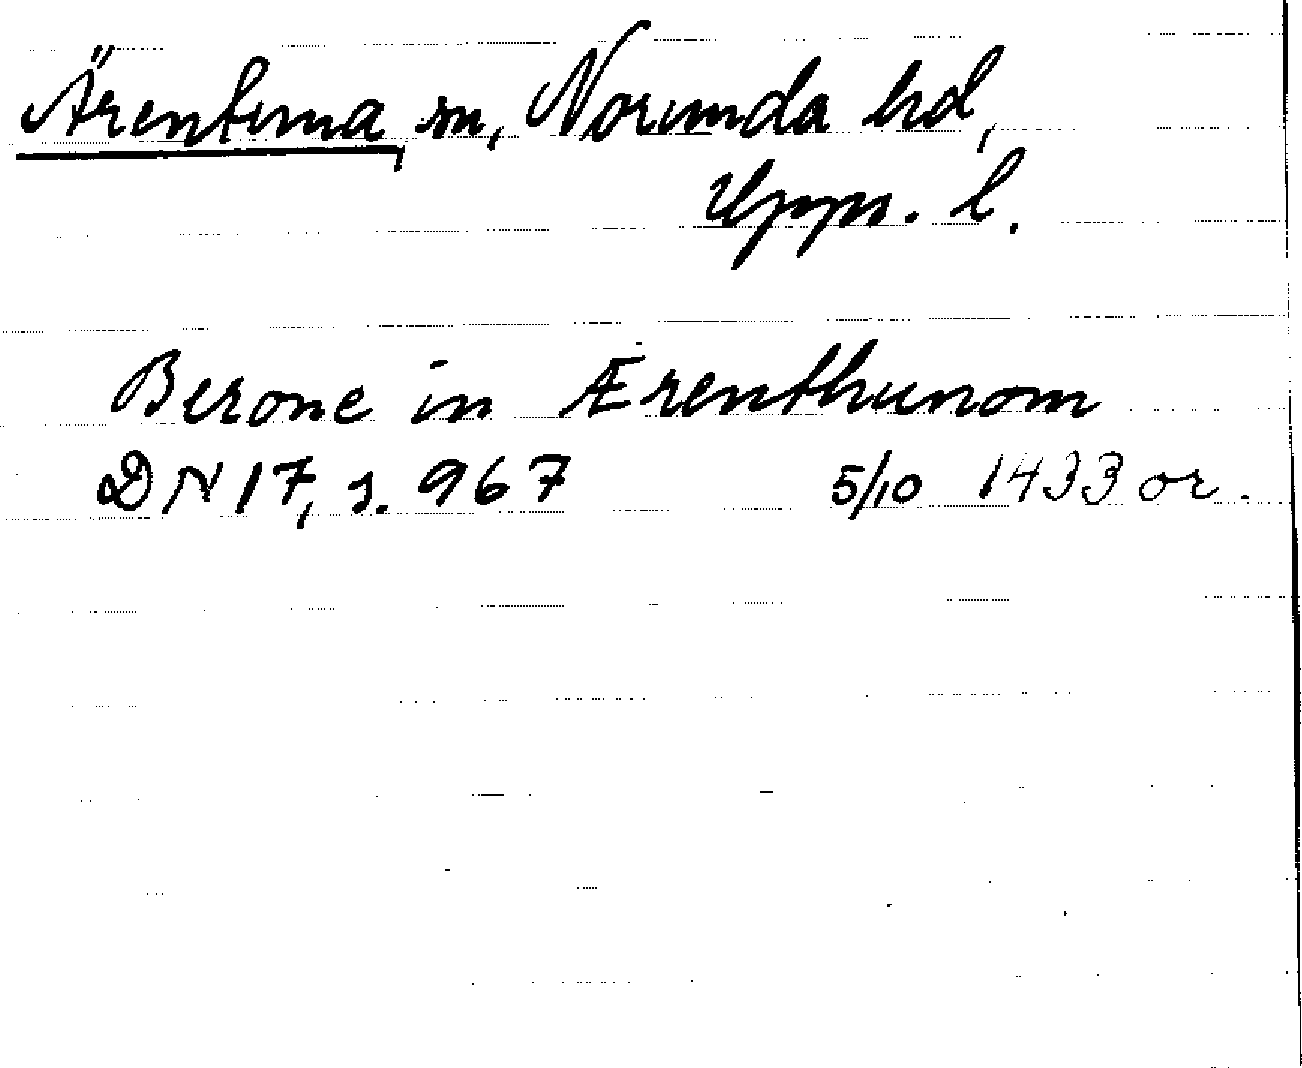 Ärentuna, sn, Norunda hd,
Upps. l.
Berone in Ærenthunom
DN 17, s. 967 5/10 1433 or.